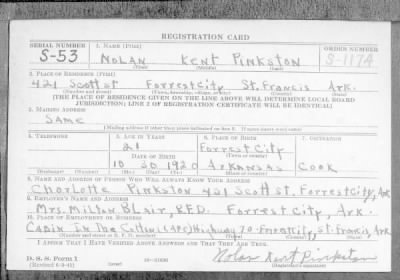 REGISTRATION CARD
SERIAL NUMBER 1. NAME (Print) ORDER NUMBER
S-53 NOLAN Kent Pinkston S-117A
(First) (Middle) (Last)
2. PLACE OF RESIDENCE (Print)
421 Scott st Forrest City St. Francis Ark.
(Number and street) (Town, township, village, or city) (County) (State)
[THE PLACE OF RESIDENCE GIVEN ON THE LINE ABOVE WILL DETERMINE LOCAL BOARD
JURISDICTION; LINE 2 OF REGISTRATION CERTIFICATE WILL BE IDENTICAL]
3. MAILING ADDRESS
Same
[Mailing address if other than place indicated on line 2. If same insert word same]
4. TELEPHONE 5. AGE IN YEARS 6. PLACE OF BIRTH 7. OCCUPATION
21 Forrest City
DATE OF BIRTH (Town or county)
10 20 1920 Arkansas Cook
(Mo.) (Day) (Yr.) (State or country)
8. NAME AND ADDRESS OF PERSON WHO WILL ALWAYS KNOW YOUR ADDRESS
Charlotte Pinkston 421 Scott st. Forrest City, Ark
9. EMPLOYER'S NAME AND ADDRESS
Mrs. Milton Blair, R.F.D. Forrest City, Ark.
10. PLACE OF EMPLOYMENT OR BUSINESS
Cabin In The Cotton (Cafe) Highway 70 Forrest City, St. Francis, Ark
(Number and street or R. F. D. number) (Town) (County) (State)
I AFFIRM THAT I HAVE VERIFIED ABOVE ANSWERS AND THAT THEY ARE TRUE.
D. S. S. Form 1 Nolan Kent Pinkston